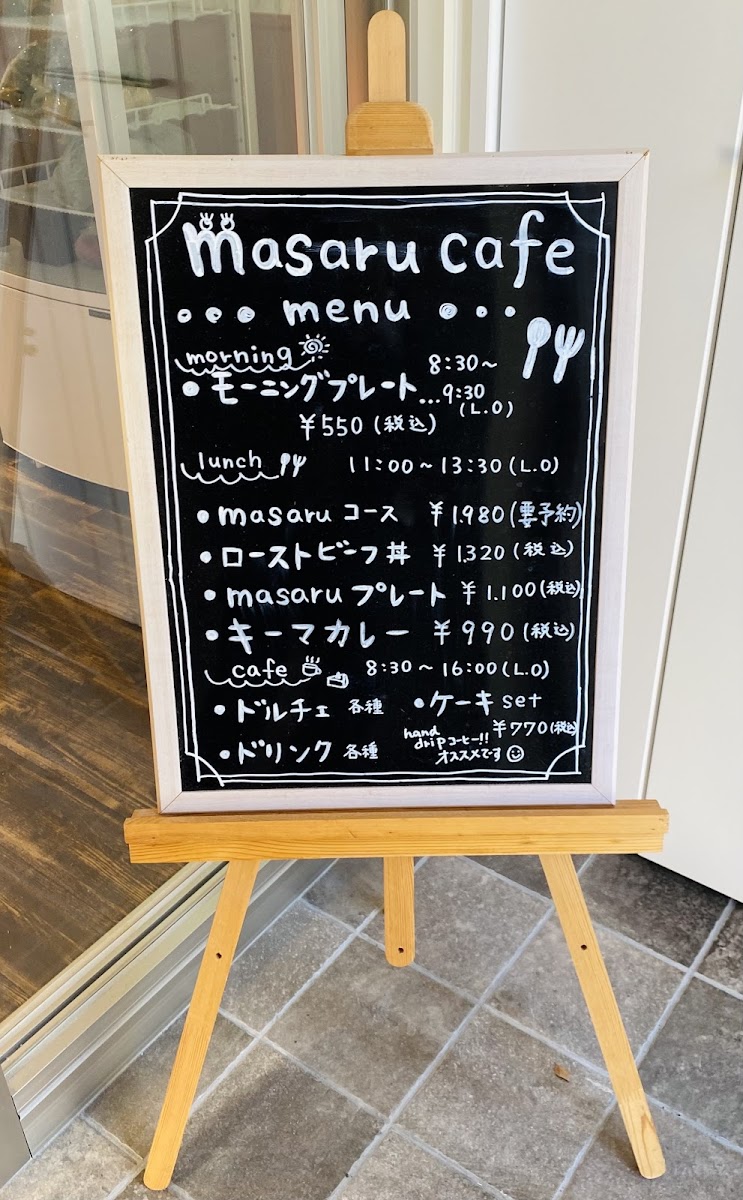 masaru cafe
menu
morning 8:30～
・モーニングプレート…9:30
(L.O)
¥550 (税込)
lunch 11:00～13:30(L.O)
・masaru コース ¥1,980(要予約)
・ローストビーフ丼 ¥1,320 (税込)
・masaru プレート ¥1.100(税込)
・キーマカレー ¥990(税込)
cafe 8:30～16:00(L.O)
・ドルチェ 各種 ・ケーキ set
¥770(税込)
・ドリンク 各種 hand
dripコーヒー!!
オススメです